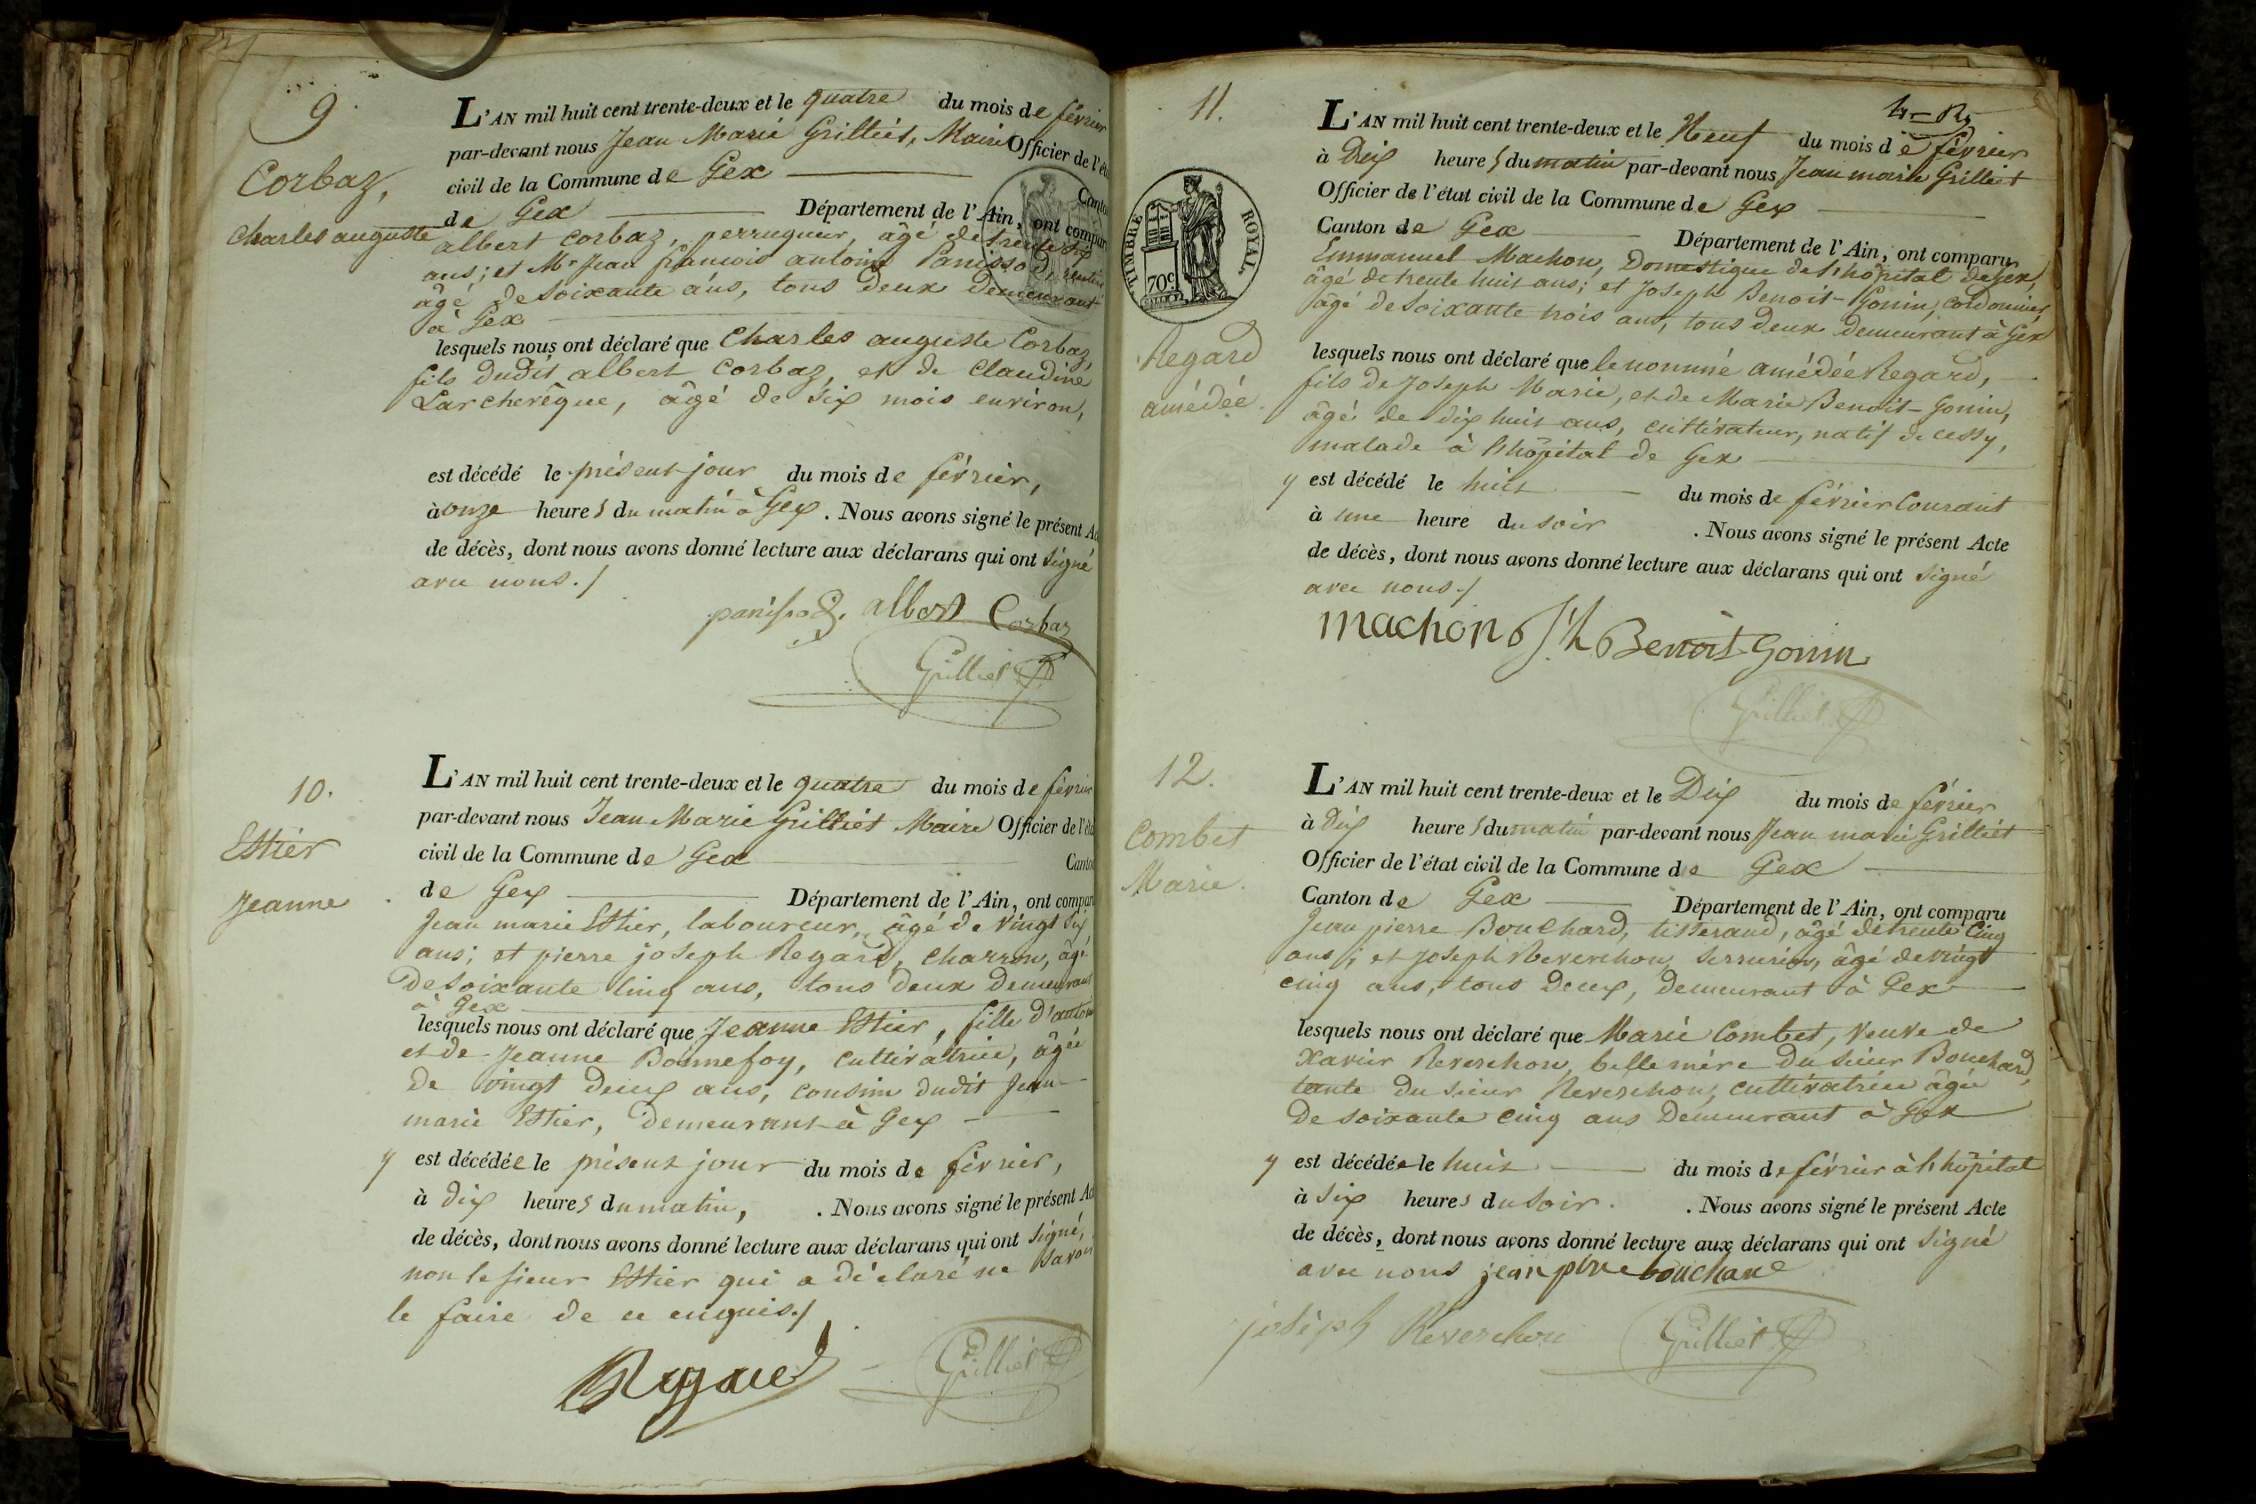 9
Corbaz,
Charles auguste
L'AN mil huit cent trente-deux et le quatre du mois de février
par-devant nous Jean Marie Grilliét, Maire Officier de l'éta
civil de la Commune de Gex Canto
de Gex Département de l'Ain, ont compar
albert corbaz, perruqueur, âgé de trente six
ans; et Mr Jean francois antoine Panissod, rentier
âgé de soixante ans, tous deux demeurant
à Gex
lesquels nous ont déclaré que Charles auguste Corbaz,
fils dudit albert Corbaz, et de Claudine
Larchevêque, âgé de six mois environ,
est décédé le présent jour du mois de février,
à onze heures du matin à Gex. Nous avons signé le présent Ac
de décès, dont nous avons donné lecture aux déclarans qui ont signé
avec nous./
panissod. albert Corbaz
Grilliet
10.
Estier
Jeanne
L'AN mil huit cent trente-deux et le quatre du mois de février
par-devant nous Jean Marie Grilliét Maire Officier de l'éta
civil de la Commune de Gex Canto
de Gex Département de l'Ain, ont compar
Jean marie Estier, laboureur, âgé de vingt six
ans; et pierre joseph Regard, charron, âgé
de soixante cinq ans, tous deux demeurant
à Gex
lesquels nous ont déclaré que Jeanne Estier, fille d'antoine
et de Jeanne Bonnefoy, cultivatrice, âgée
de vingt deux ans, cousine dudit Jean
marie Estier, demeurant à Gex
y est décédée le présent jour du mois de février,
à dix heures du matin, . Nous avons signé le présent Ac
de décès, dont nous avons donné lecture aux déclarans qui ont signé,
non le sieur Estier qui a déclaré ne savoir
le faire de ce enquis./
Regard Grilliet
11.
TIMBRE ROYAL.
70c
Regard
amédée.
L'AN mil huit cent trente-deux et le Neuf du mois de février
à Dix heures du matin par-devant nous Jean marie Grilliet
Officier de l'état civil de la Commune de Gex
Canton de Gex Département de l'Ain, ont comparu
Emmanuel Machon, Domestique de l'hôpital de Gex,
âgé de trente huit ans; et Joseph Benoit-Gonin, cordonnier,
âgé de soixante trois ans, tous deux demeurant à Gex
lesquels nous ont déclaré que le nommé amédée Regard,
fils de Joseph Marie, et de Marie Benoit-Gonin,
âgé de dix huit ans, cultivateur, natif de cessy,
malade à l'hôpital de Gex
y est décédé le huit du mois de février Courant
à une heure du soir . Nous avons signé le présent Acte
de décès, dont nous avons donné lecture aux déclarans qui ont signé
avec nous./
machon Jh Benoit Gonin
Grilliet
12.
Combet
Marie.
L'AN mil huit cent trente-deux et le Dix du mois de février
à dix heures du matin par-devant nous Jean marie Grilliét
Officier de l'état civil de la Commune de Gex
Canton de Gex Département de l'Ain, ont comparu
Jean pierre Bouchard, tisserand, âgé de trente cinq
ans; et Joseph Reverchon, serrurier, âgé de vingt
cinq ans, tous deux, demeurant à Gex
lesquels nous ont déclaré que Marie Combet, veuve de
Xavier Reverchon, belle mère du sieur Bouchard,
tante du sieur Reverchon, cultivatrice âgée
de soixante cinq ans demeurant à Gex
y est décédée le huit du mois de février à l'hôpital
à six heures du soir. . Nous avons signé le présent Acte
de décès, dont nous avons donné lecture aux déclarans qui ont signé
avec nous jean piere bouchard
joseph Reverchon Grilliet